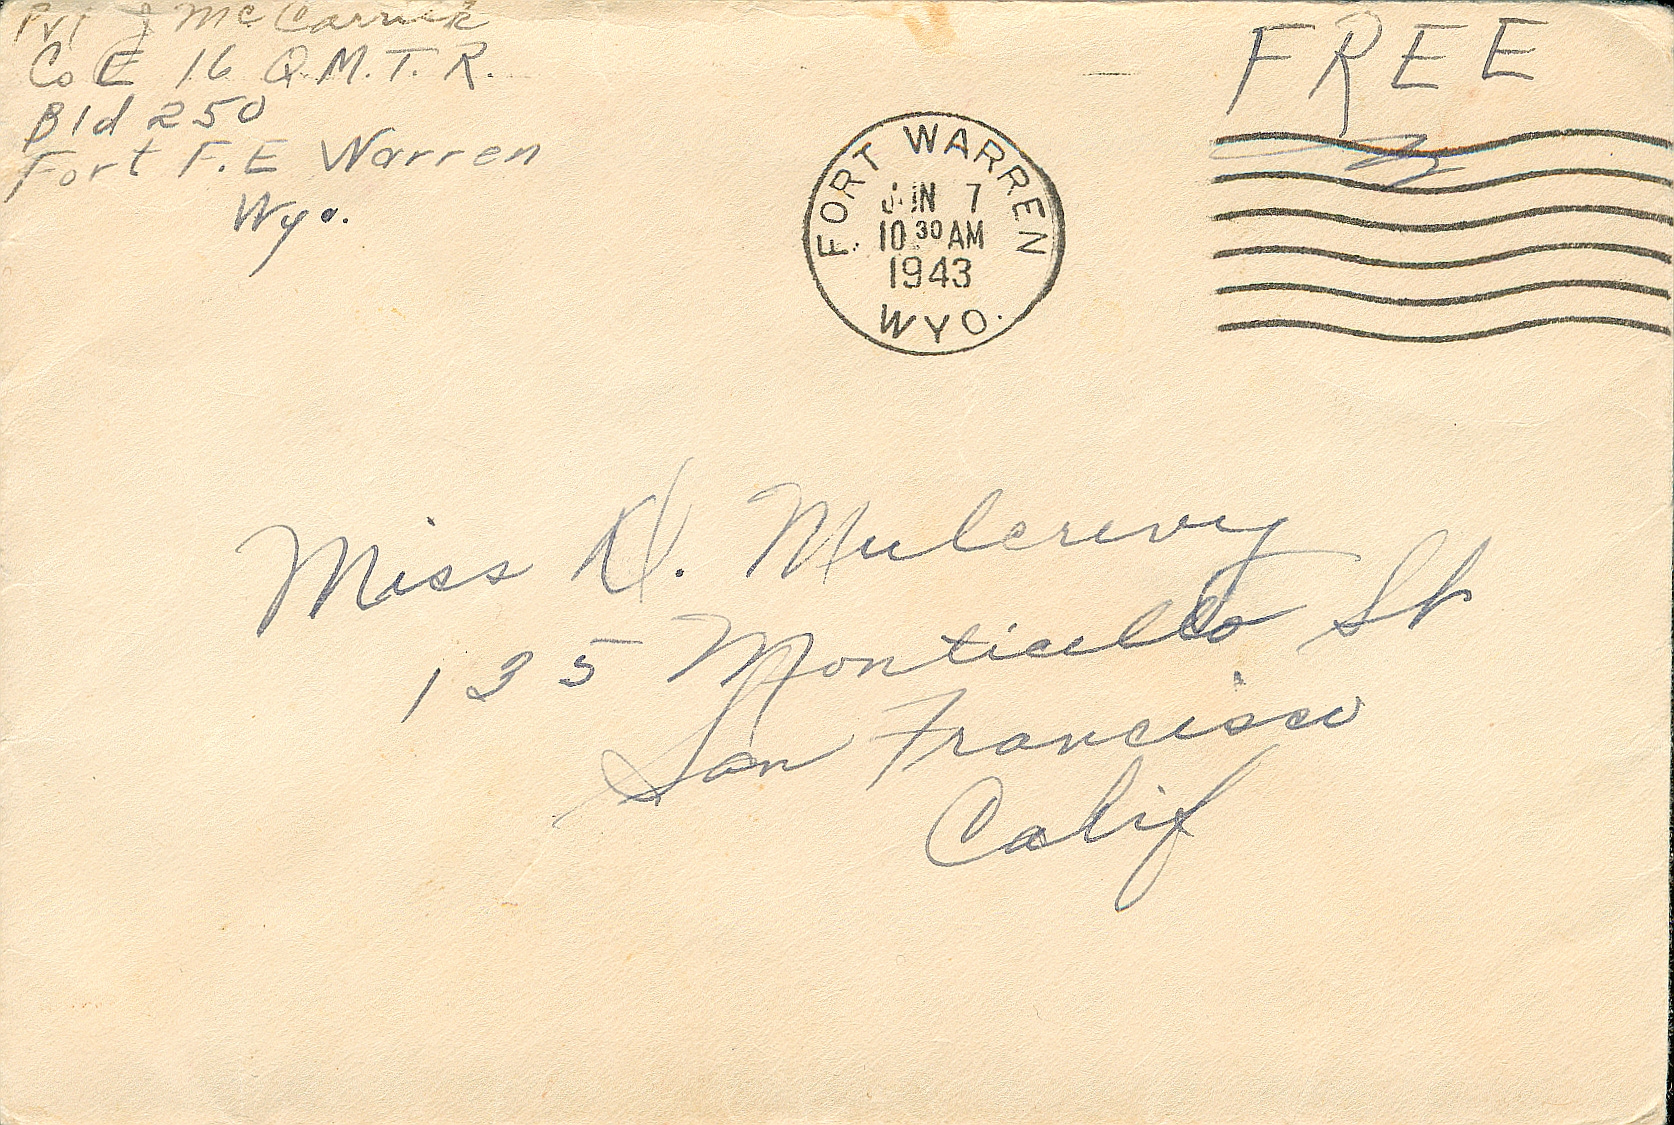 Pvt J McCarrick
Co E 16 Q.M.T.R.
Bld 250
Fort F.E Warren
Wyo.
FREE
FORT WARREN
JUN 7
10 30 AM
1943
WYO.
Miss D. Mulcrevy
135 Monticello St
San Francisco
Calif